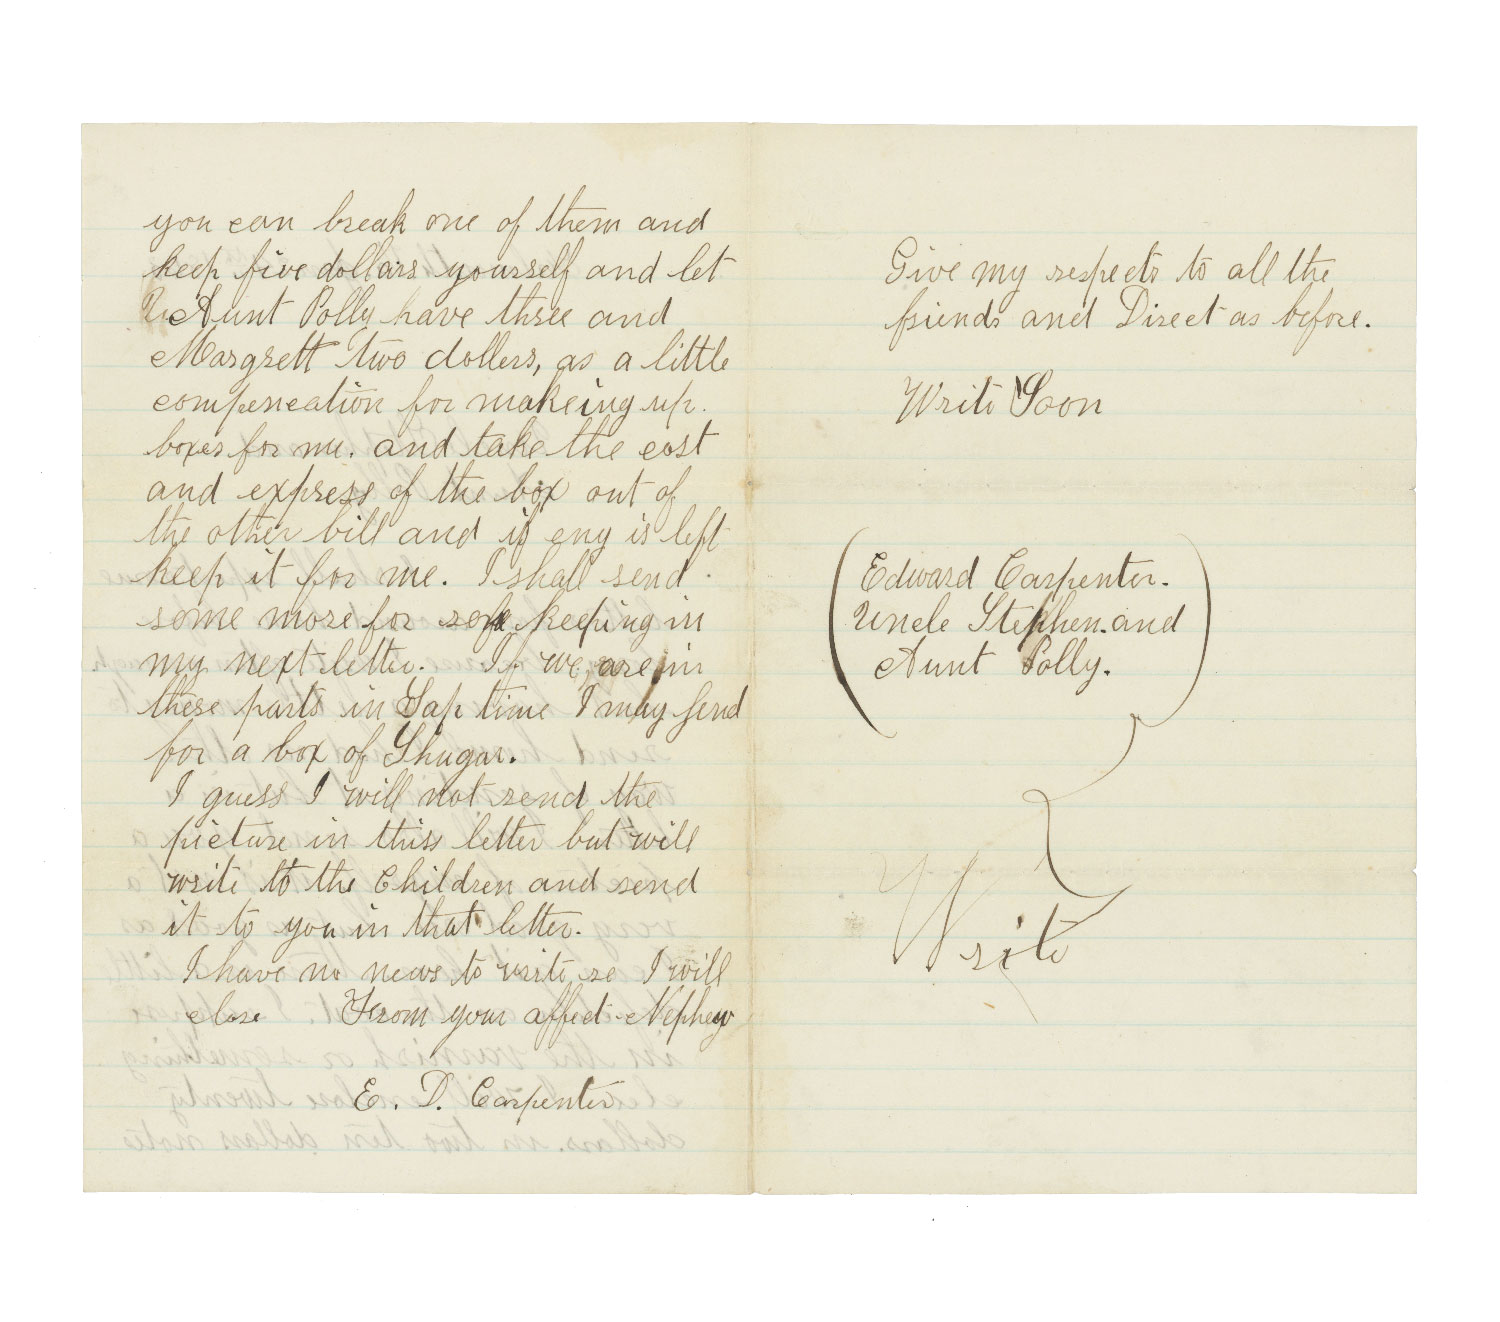 you can break one of them and
keep five dollars yourself and let
Aunt Polly have three and
Margrett two dollers, as a little
compencation for makeing up.
boxes for me. and take the cost
and express of the box out of
the other bill and if eny is left
keep it for me. I shall send
some more for safe keeping in
my next letter. If we are in
these parts in Sap time I may send
for a box of Shugar.
I guess I will not send the
picture in this letter but will
write to the Children and send
it to you in that letter.
I have no news to write so I will
close From your affect Nephew
E. D. Carpenter
Give my respects to all the
friends and Direct as before.
Write Soon
Edward Carpenter.
Uncle Stephen. and
Aunt Polly.
Write